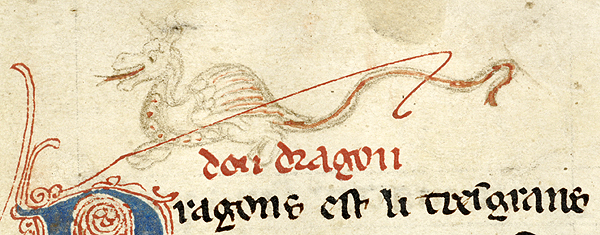 dou dragon
Dragons est li tres grans